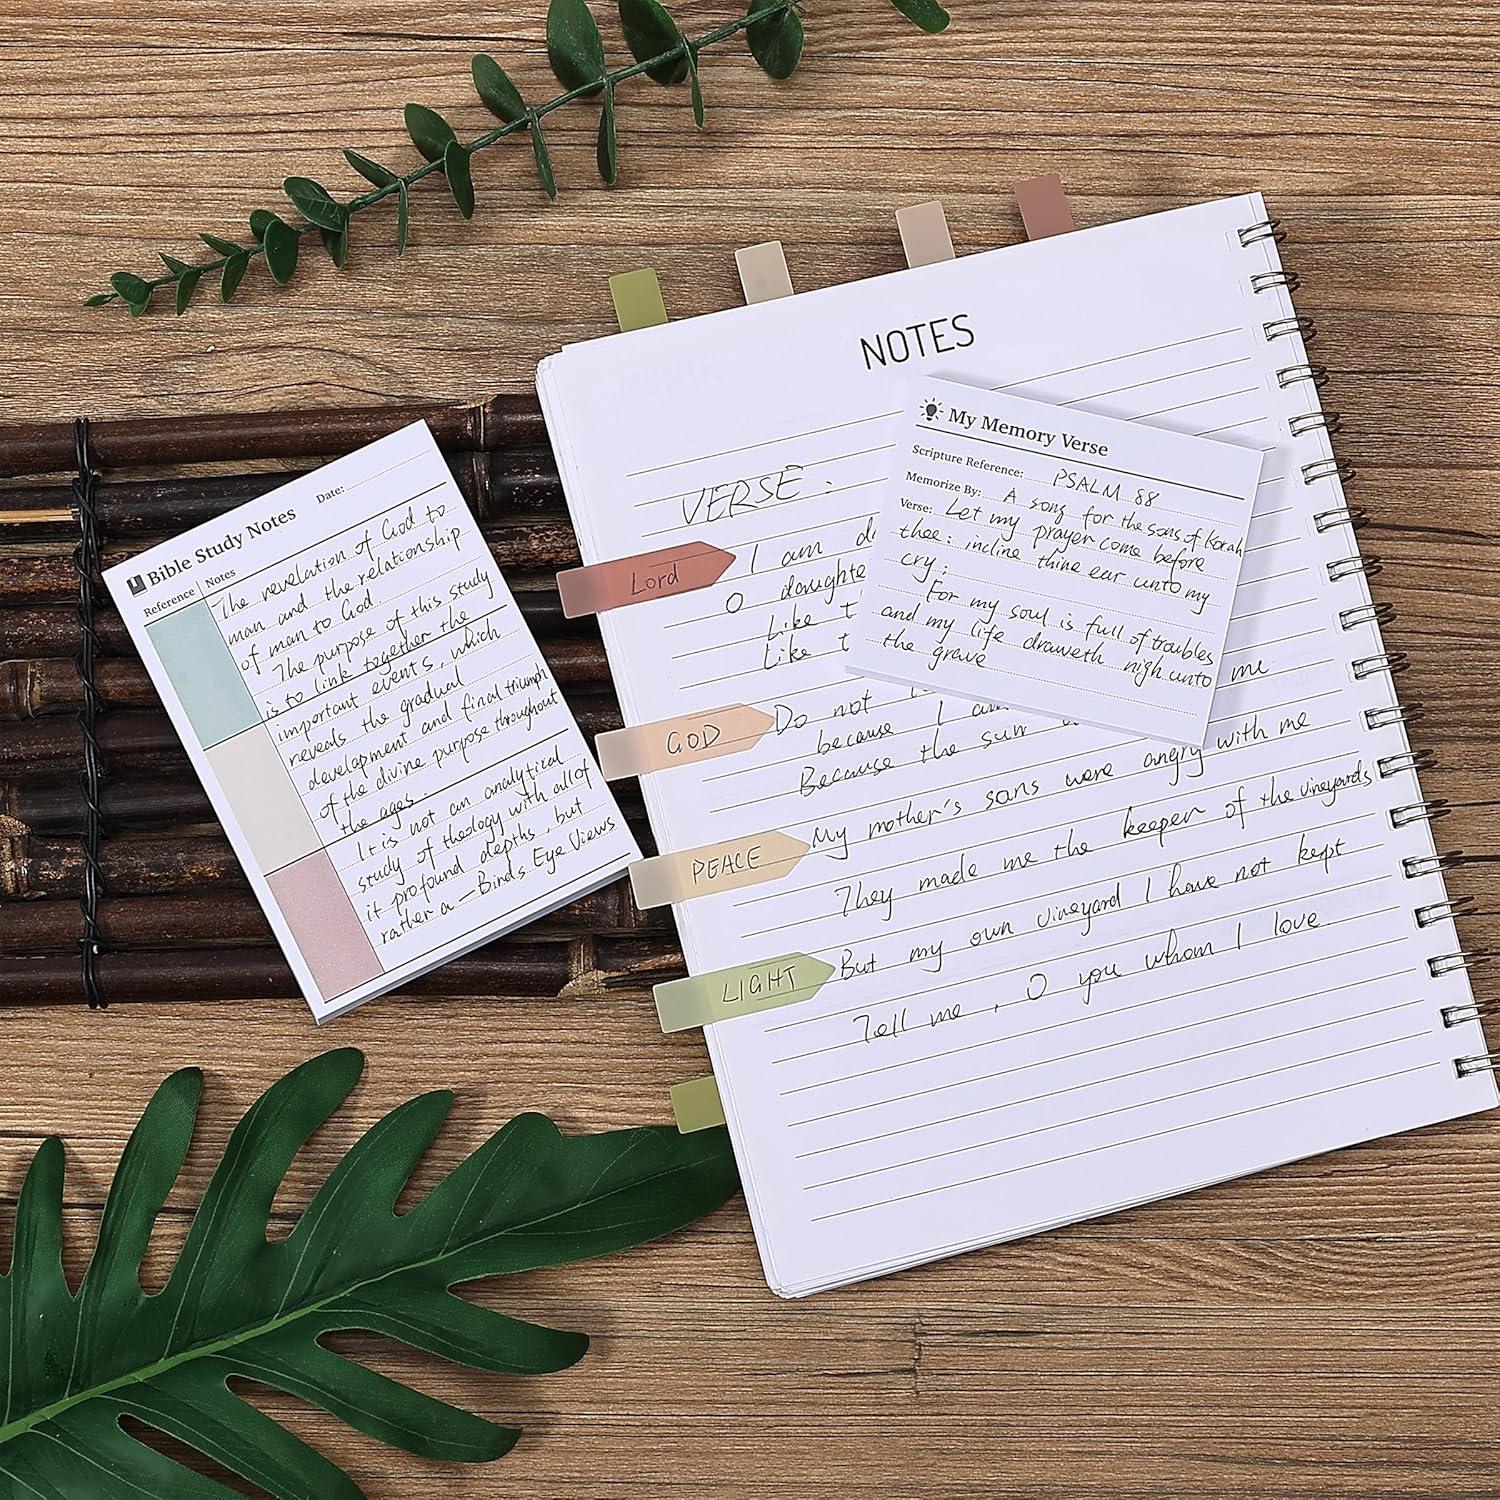 Bible Study Notes
Date:
Reference Notes
The revelation of God to
man and the relationship
of man to God
The purpose of this study
is to link together the
important events, which
reveals the gradual
development and final triumph
of the divine purpose throughout
the ages.
It is not an analytical
study of theology with all of
it profound depths, but
rather a — Birds Eye Views
NOTES
VERSE:
Lord
I am
O daughte
Like t
Like t
me
GOD
Do not
because I am
Because the sun
PEACE
My mother's sons were angry with me
They made me the keeper of the vineyards
LIGHT
But my own vineyard I have not kept
Tell me, O you whom I love
My Memory Verse
Scripture Reference: PSALM 88
Memorize By: A song for the sons of Korah
Verse: Let my prayer come before
thee: incline thine ear unto my
cry:
For my soul is full of troubles
and my life draweth nigh unto
the grave